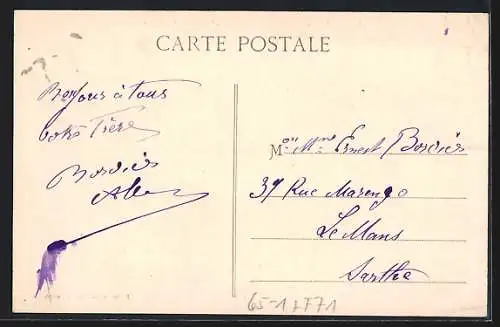 CARTE POSTALE
Bonjour à tous
votre Frère
Bordier
M on Mme Ernest Bordier
39 Rue Marengo
Le Mans
Sarthe
65-1